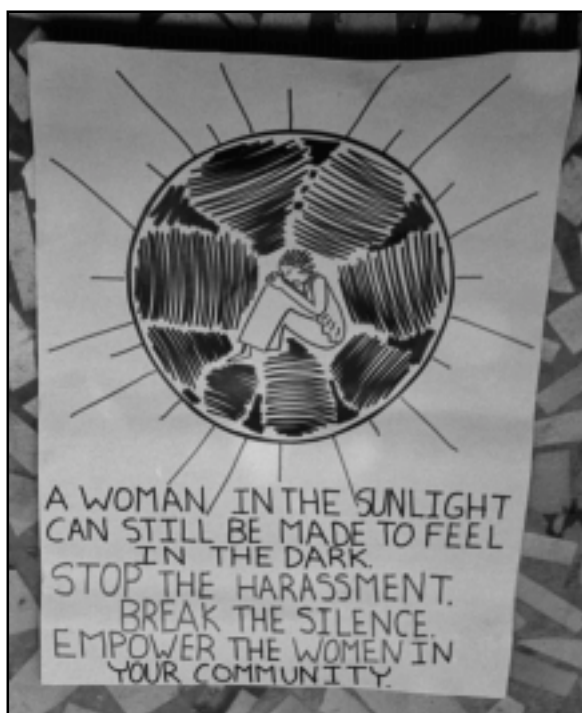 A WOMAN IN THE SUNLIGHT
CAN STILL BE MADE TO FEEL
IN THE DARK.
STOP THE HARASSMENT.
BREAK THE SILENCE.
EMPOWER THE WOMEN IN
YOUR COMMUNITY.